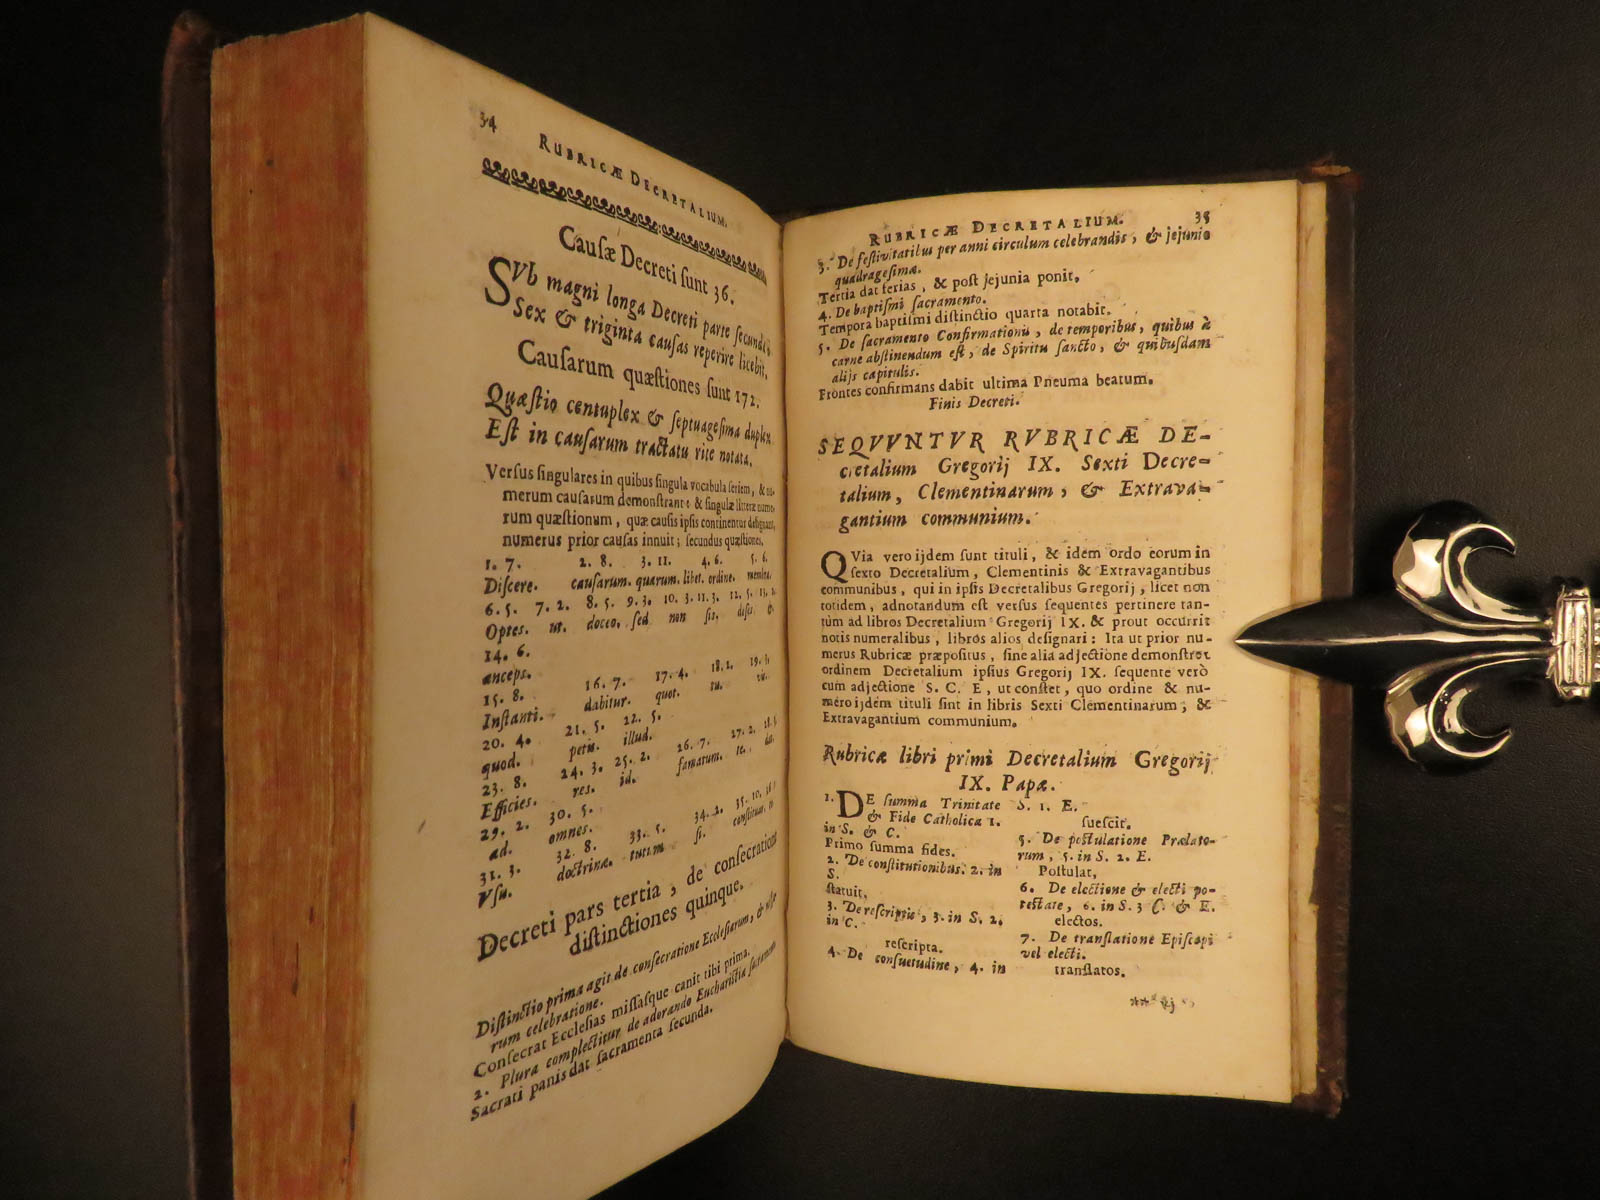 34 RUBRICÆ DECRETALIUM.
Cauſæ Decreti ſunt 36.
SVb magni longa Decreti parte ſecunda
Sex & triginta cauſas reperire licebit.
Cauſarum quæſtiones ſunt 172.
Quæſtio centuplex & ſeptuageſima duplex
Eſt in cauſarum tractatu rite notata.
Verſus ſingulares in quibus ſingula vocabula ſeriem, & nu-
merum cauſarum demonſtrant & ſingulæ litteræ nume-
rum quæſtionum, quæ cauſis ipſis continentur deſignant,
numerus prior cauſas innuit; ſecundus quæſtiones.
1. 7. 2. 8. 3. 11. 4. 6. 5. 6.
Diſcere. cauſarum. quarum. libet. ordine. membra.
6. 5. 7. 2. 8. 5. 9. 3. 10. 3. 11. 3. 12. 5. 13. 2.
Optes. ut. doceo. ſed non ſis. diſis &
14. 6.
anceps.
15. 8. 16. 7. 17. 4. 18. 2. 19. 3.
Inſtanti. dabitur. quot. tu.
20. 4. 21. 5. 22. 5.
quod. petis. illud.
23. 8. 24. 3. 25. 2. 26. 7. 27. 2.
Efficies. res. id. famarum. te.
29. 2. 30. 5.
ad. omnes.
31. 3. 32. 8. 33. 5. 34. 2. 35. 10.
Vſu. doctrinæ. tutim ſi.
Decreti pars tertia, de conſecratione
diſtinctiones quinque.
Diſtinctio prima agit de conſecratione Eccleſiarum, &
rum celebratione.
Conſecrat Eccleſias miſſaſque canit tibi prima.
2. Plura complectitur de adorando Euchariſtiæ ſacramento
Sacrati panis dat ſacramenta ſecunda.
RUBRICÆ DECRETALIUM. 35
3. De feſtivitatibus per anni circulum celebrandis, & jejunio
quadrageſimæ.
Tertia dat ferias, & poſt jejunia ponit,
4. De baptiſmi ſacramento.
Tempora baptiſmi diſtinctio quarta notabit.
5. De ſacramento Confirmationis, de temporibus, quibus à
carne abſtinendum eſt, de Spiritu ſancto, & quibuſdam
alijs capitulis.
Frontes confirmans dabit ultima Pneuma beatum.
Finis Decreti.
SEQVVNTVR RVBRICÆ DE-
cretalium Gregorij IX. Sexti Decre-
talium, Clementinarum, & Extrava-
gantium communium.
QVia vero ijdem ſunt tituli, & idem ordo eorum in
ſexto Decretalium, Clementinis & Extravagantibus
communibus, qui in ipſis Decretalibus Gregorij, licet non
totidem, adnotandum eſt verſus ſequentes pertinere tan-
tùm ad libros Decretalium Gregorij IX. & prout occurrit
notis numeralibus, libros alios deſignari: Ita ut prior nu-
merus Rubricæ præpoſitus, ſine alia adjectione demonſtret
ordinem Decretalium ipſius Gregorij IX. ſequente verò
cum adjectione S. C. E, ut conſtet, quo ordine & nu-
mero ijdem tituli ſint in libris Sexti Clementinarum, &
Extravagantium communium.
Rubricæ libri primi Decretalium Gregorij
IX. Papæ.
1. DE ſumma Trinitate
& Fide Catholica 1.
in S. & C.
Primo ſumma fides.
2. De conſtitutionibus. 2. in
S.
ſtatuit.
3. De reſcriptis, 3. in S. 2.
in C.
reſcripta.
4. De conſuetudine, 4. in
S. 1. E.
ſueſcit.
5. De poſtulatione Prælato-
rum, 5. in S. 2. E.
Poſtulat,
6. De electione & electi po-
teſtate, 6. in S. 3 C. & E.
electos.
7. De tranſlatione Epiſcopi
vel electi.
tranſlatos.